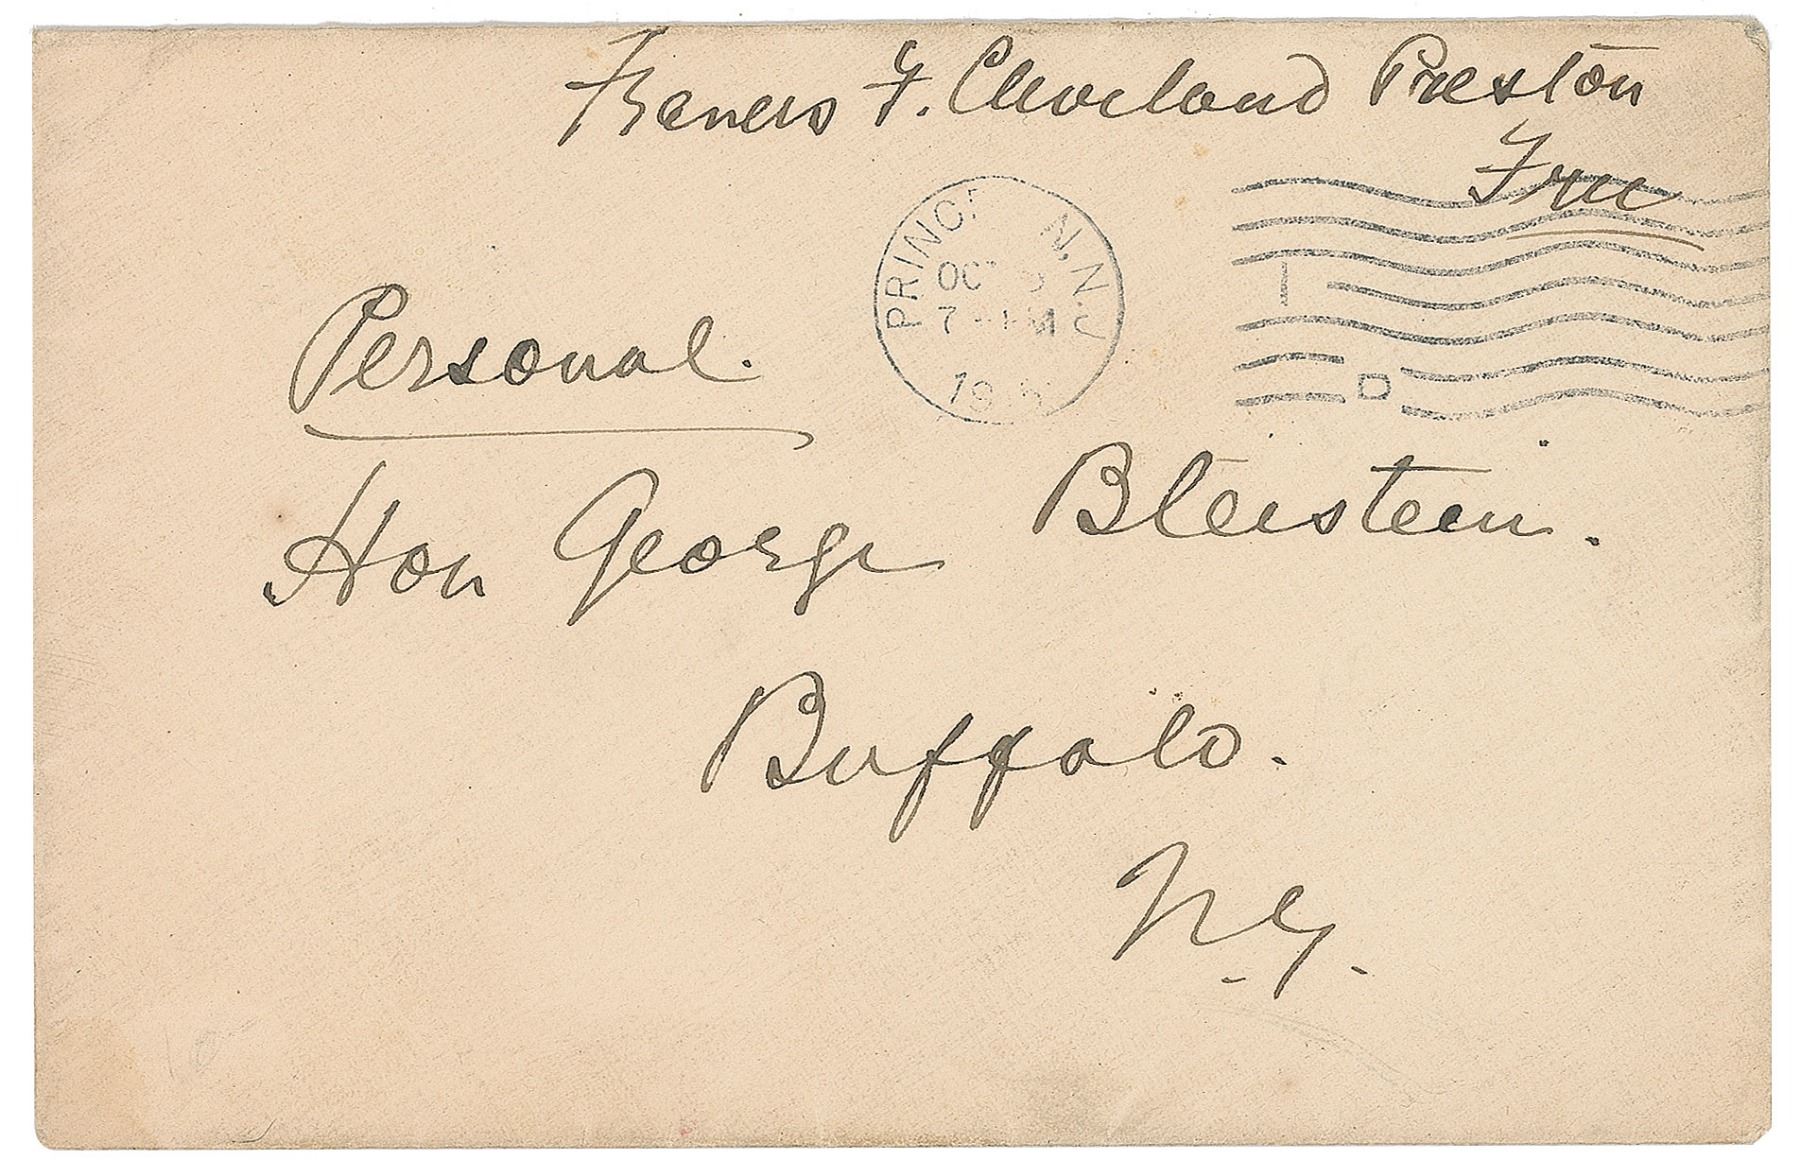 Frances F. Cleveland Preston
Free
PRINCE N. N.J.
OCT
7 - PM
19
Personal.
Hon George Bleistein.
Buffalo.
N.Y.